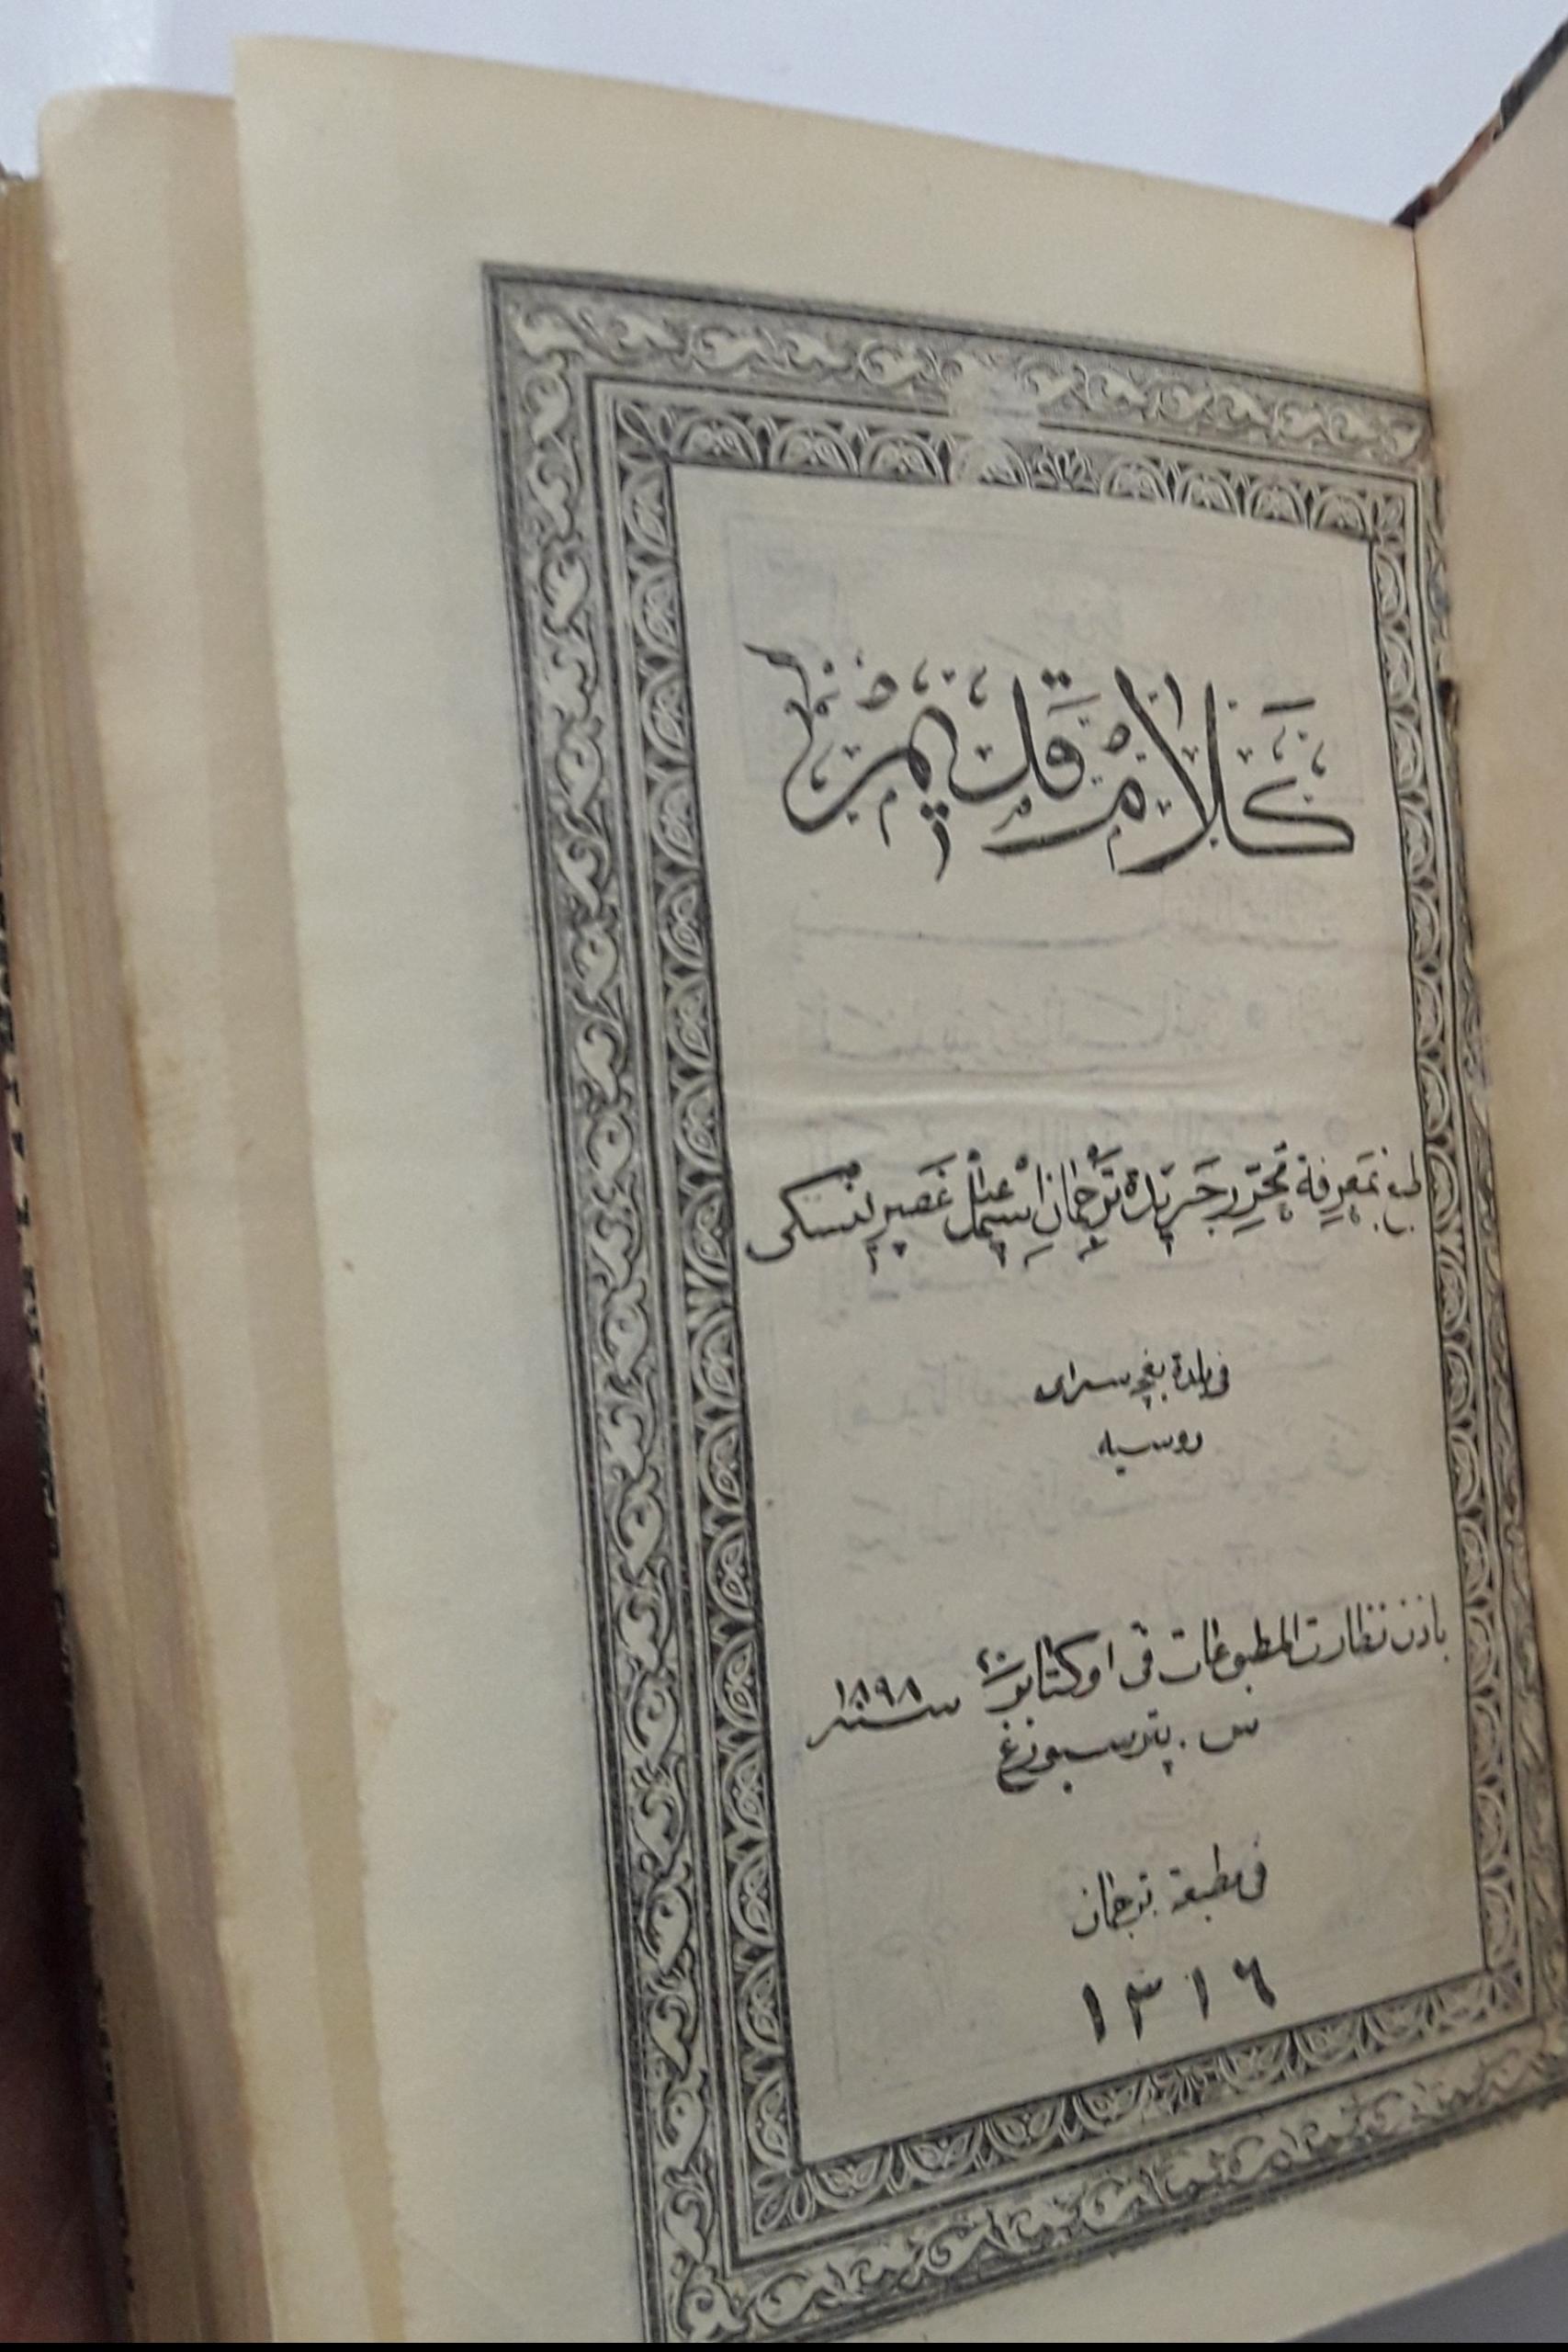 كَلَامِ قَدِيمْ
طبع بمَعرِفة محَرّرِ جَريَدة تَرجمَانِ اسْمٰعیل غَصپرِنسكى
فى بلدة بغچه سراى
روسيه
باذن نظارت المطبوعات فى اوكتابر ٢٠ سنه ١٨٩٨
س . پترسبورغ
فى مطبعۀ ترجمان
١٣١٦